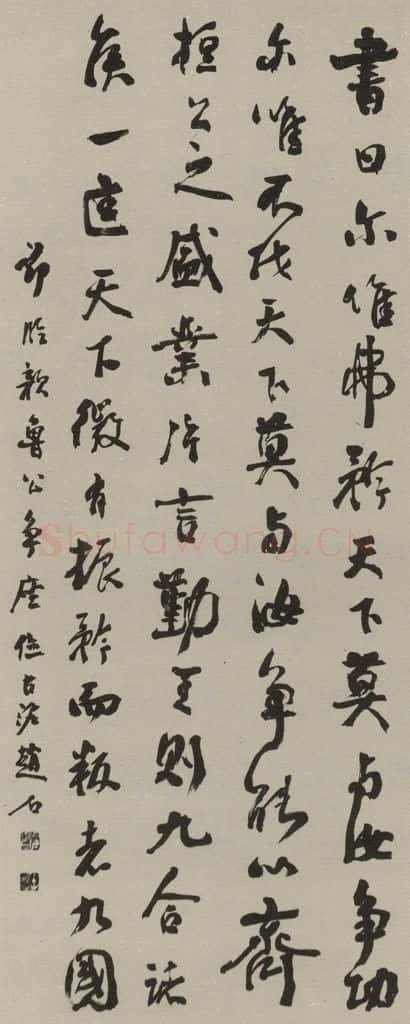 書曰尔惟弗矜天下莫与汝争功
尔唯不伐天下莫与汝争能以齊
桓公之盛業片言勤王則九合諸
侯一匡天下微有振矜而叛者九國
節臨顏魯公争座位古泥趙石
Shufawang.CN